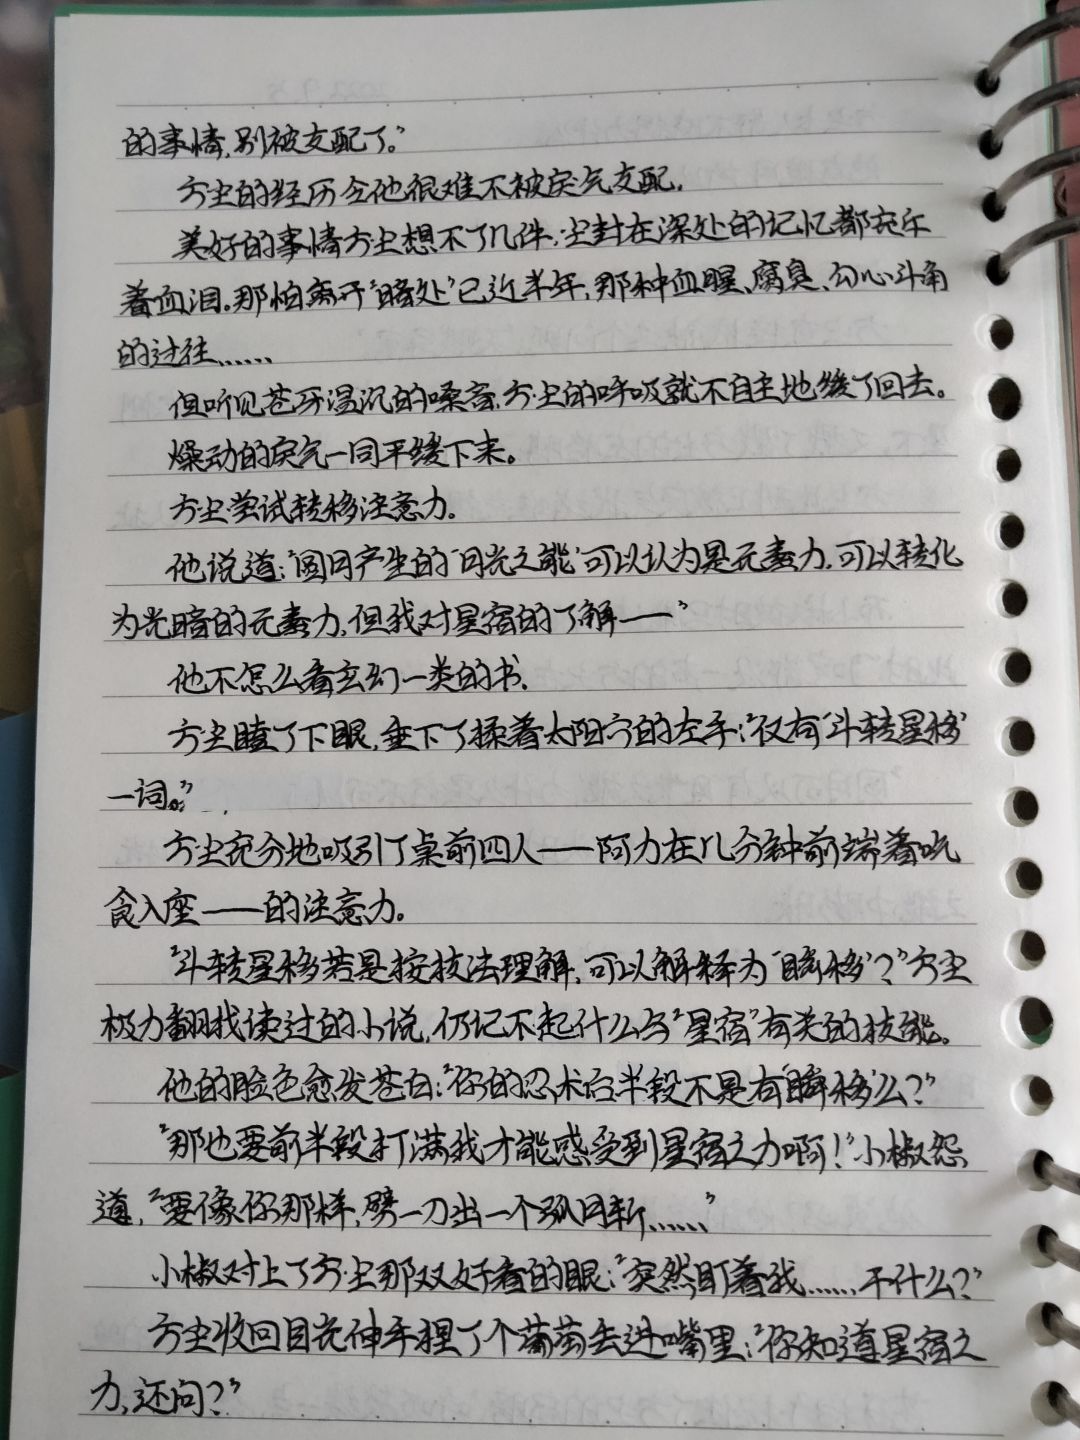 的事情,别被支配了。”
方尘的经历令他很难不被戾气支配.
美好的事情方尘想不了几件.尘封在深处的记忆都充斥
着血泪。那怕离开“暗处”已近半年,那种血腥、腐臭、勾心斗角
的过往……
但听见苍牙温沉的嗓音,方尘的呼吸就不自主地缓了回去。
燥动的戾气一同平缓下来。
方尘尝试转移注意力。
他说道:“圆月产生的‘月光之能’可以认为是元素力.可以转化
为光暗的元素力,但我对星宿的了解——”
他不怎么看玄幻一类的书.
方尘瞌了下眼,垂下了揉着太阳穴的左手:“仅有‘斗转星移’
一词。”
方尘充分地吸引了桌前四人——阿力在几分钟前端着吃
食入座——的注意力。
“斗转星移若是按技法理解,可以解释为‘瞬移’?”方尘
极力翻找读过的小说,仍记不起什么与“星宿”有关的技能。
他的脸色愈发苍白:“你的忍术后半段不是有‘瞬移’么?”
“那也要前半段打满我才能感受到星宿之力啊!”小椒怨
道,“要像你那样,劈一刀出一个弧月斩……”
小椒对上了方尘那双好看的眼:“突然盯着我……干什么?”
方尘收回目光伸手捏了个葡萄丢进嘴里:“你知道星宿之
力,还问?”